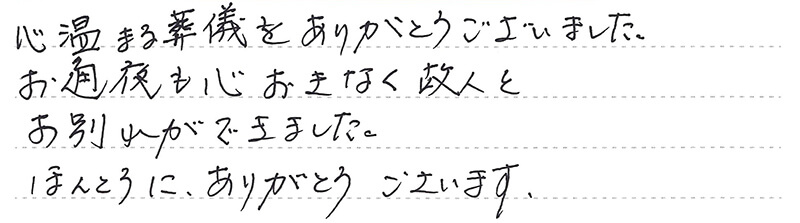 心温まる葬儀をありがとうございました。
お通夜も心おきなく故人と
お別れができました。
ほんとうに、ありがとう ございます.